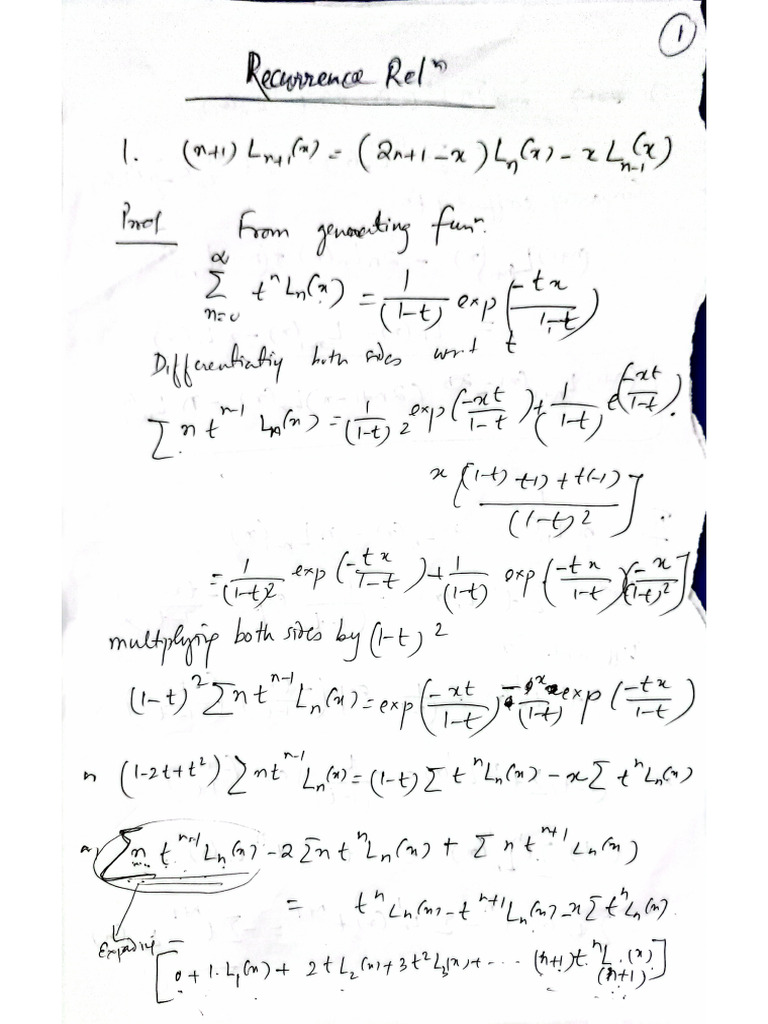 1
Recurrence Relⁿ
1. (n+1) Lₙ₊₁(x) = (2n+1-x) Lₙ(x) - x Lₙ₋₁(x)
Proof From generating funⁿ.
∑_{n=0}^{∝} tⁿ Lₙ(x) = 1/(1-t) exp(-tx/1-t)
Differentiatig both sides wrt t
∑ n tⁿ⁻¹ Lₙ(x) = 1/(1-t)² exp(-xt/1-t) + 1/(1-t) e^(-xt/1-t).
x [(1-t)+1) + t(-1)/(1-t)²]
= 1/(1-t)² exp(-tx/1-t) + 1/(1-t) exp(-tx/1-t)(-x/(1-t)²]
multiplying both sides by (1-t)²
(1-t)² ∑ n tⁿ⁻¹ Lₙ(x) = exp(-xt/1-t) - x/(1-t) exp(-tx/1-t)
(1-2t+t²) ∑ n tⁿ⁻¹ Lₙ(x) = (1-t) ∑ tⁿ Lₙ(x) - x ∑ tⁿ Lₙ(x)
∑ n tⁿ⁻¹ Lₙ(x) - 2 ∑ n tⁿ Lₙ(x) + ∑ n tⁿ⁺¹ Lₙ(x)
= tⁿ Lₙ(x) - tⁿ⁺¹ Lₙ(x) - x ∑ tⁿ Lₙ(x)
=
[0 + 1. L₁(x) + 2t L₂(x) + 3t² L₃(x) + - - - (n+1) tⁿ L₍ₙ₊₁₎(x)]